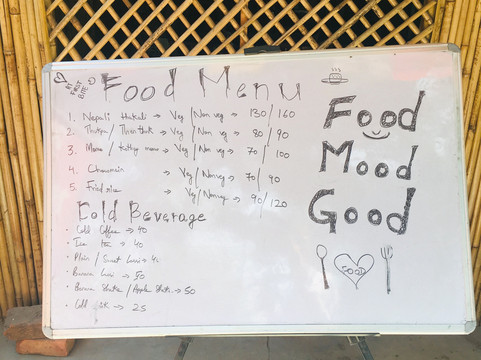 AT FIRST BITE
Food Menu
1. Nepali Thakali → Veg / Non veg → 130 / 160
2. Thukpa / Thenthuk → Veg / Non veg → 80 / 90
3. Momo / Kothey momo → Veg / Non veg → 70 / 100
4. Chowmein → Veg / Nonveg → 70 / 90
5. Fried rice → Veg / Nonveg → 90 / 120
Cold Beverage
• Cold Coffee → 90
• Ice tea → 40
• Plain / Sweet Lassi →
• Banana Lassi → 50
• Banana Shake / Apple Shake → 50
• Cold → 25
Food
Mood
Good
FOOD